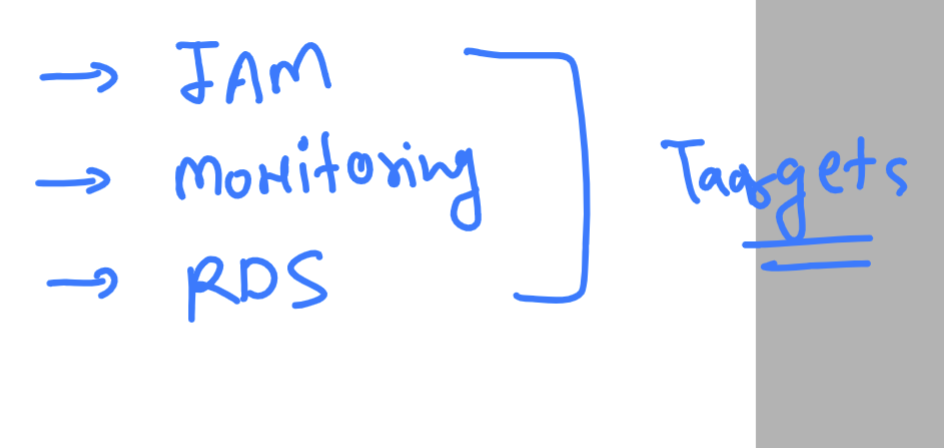 → IAM
→ Monitoring
→ RDS
Targets